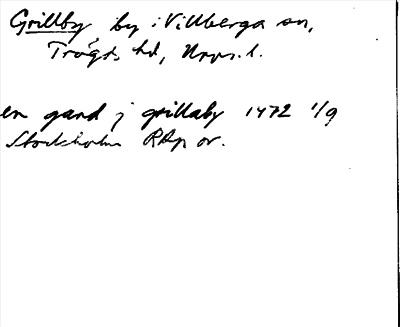 Grillby, by i Villberga sn,
Trögds hd, Upps. l.
en gard j grillaby 1472 1/9
Stockholm RAp or.